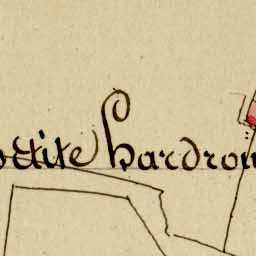 petite Hardrou